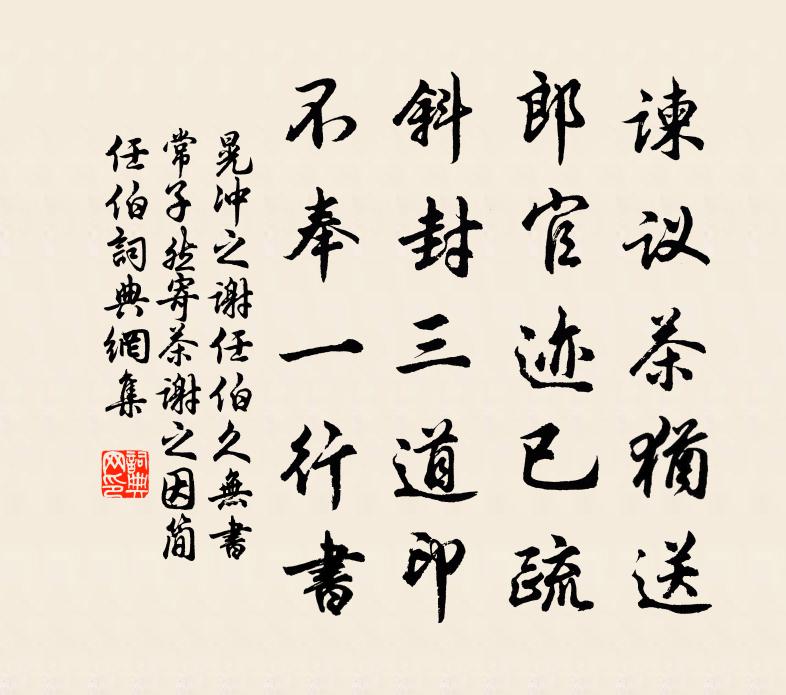 谏议茶犹送
郎官迹已疏
斜封三道印
不奉一行書
晃冲之谢任伯久無書
常子然寄茶谢之因简
任伯詞典網集
詞典
网印